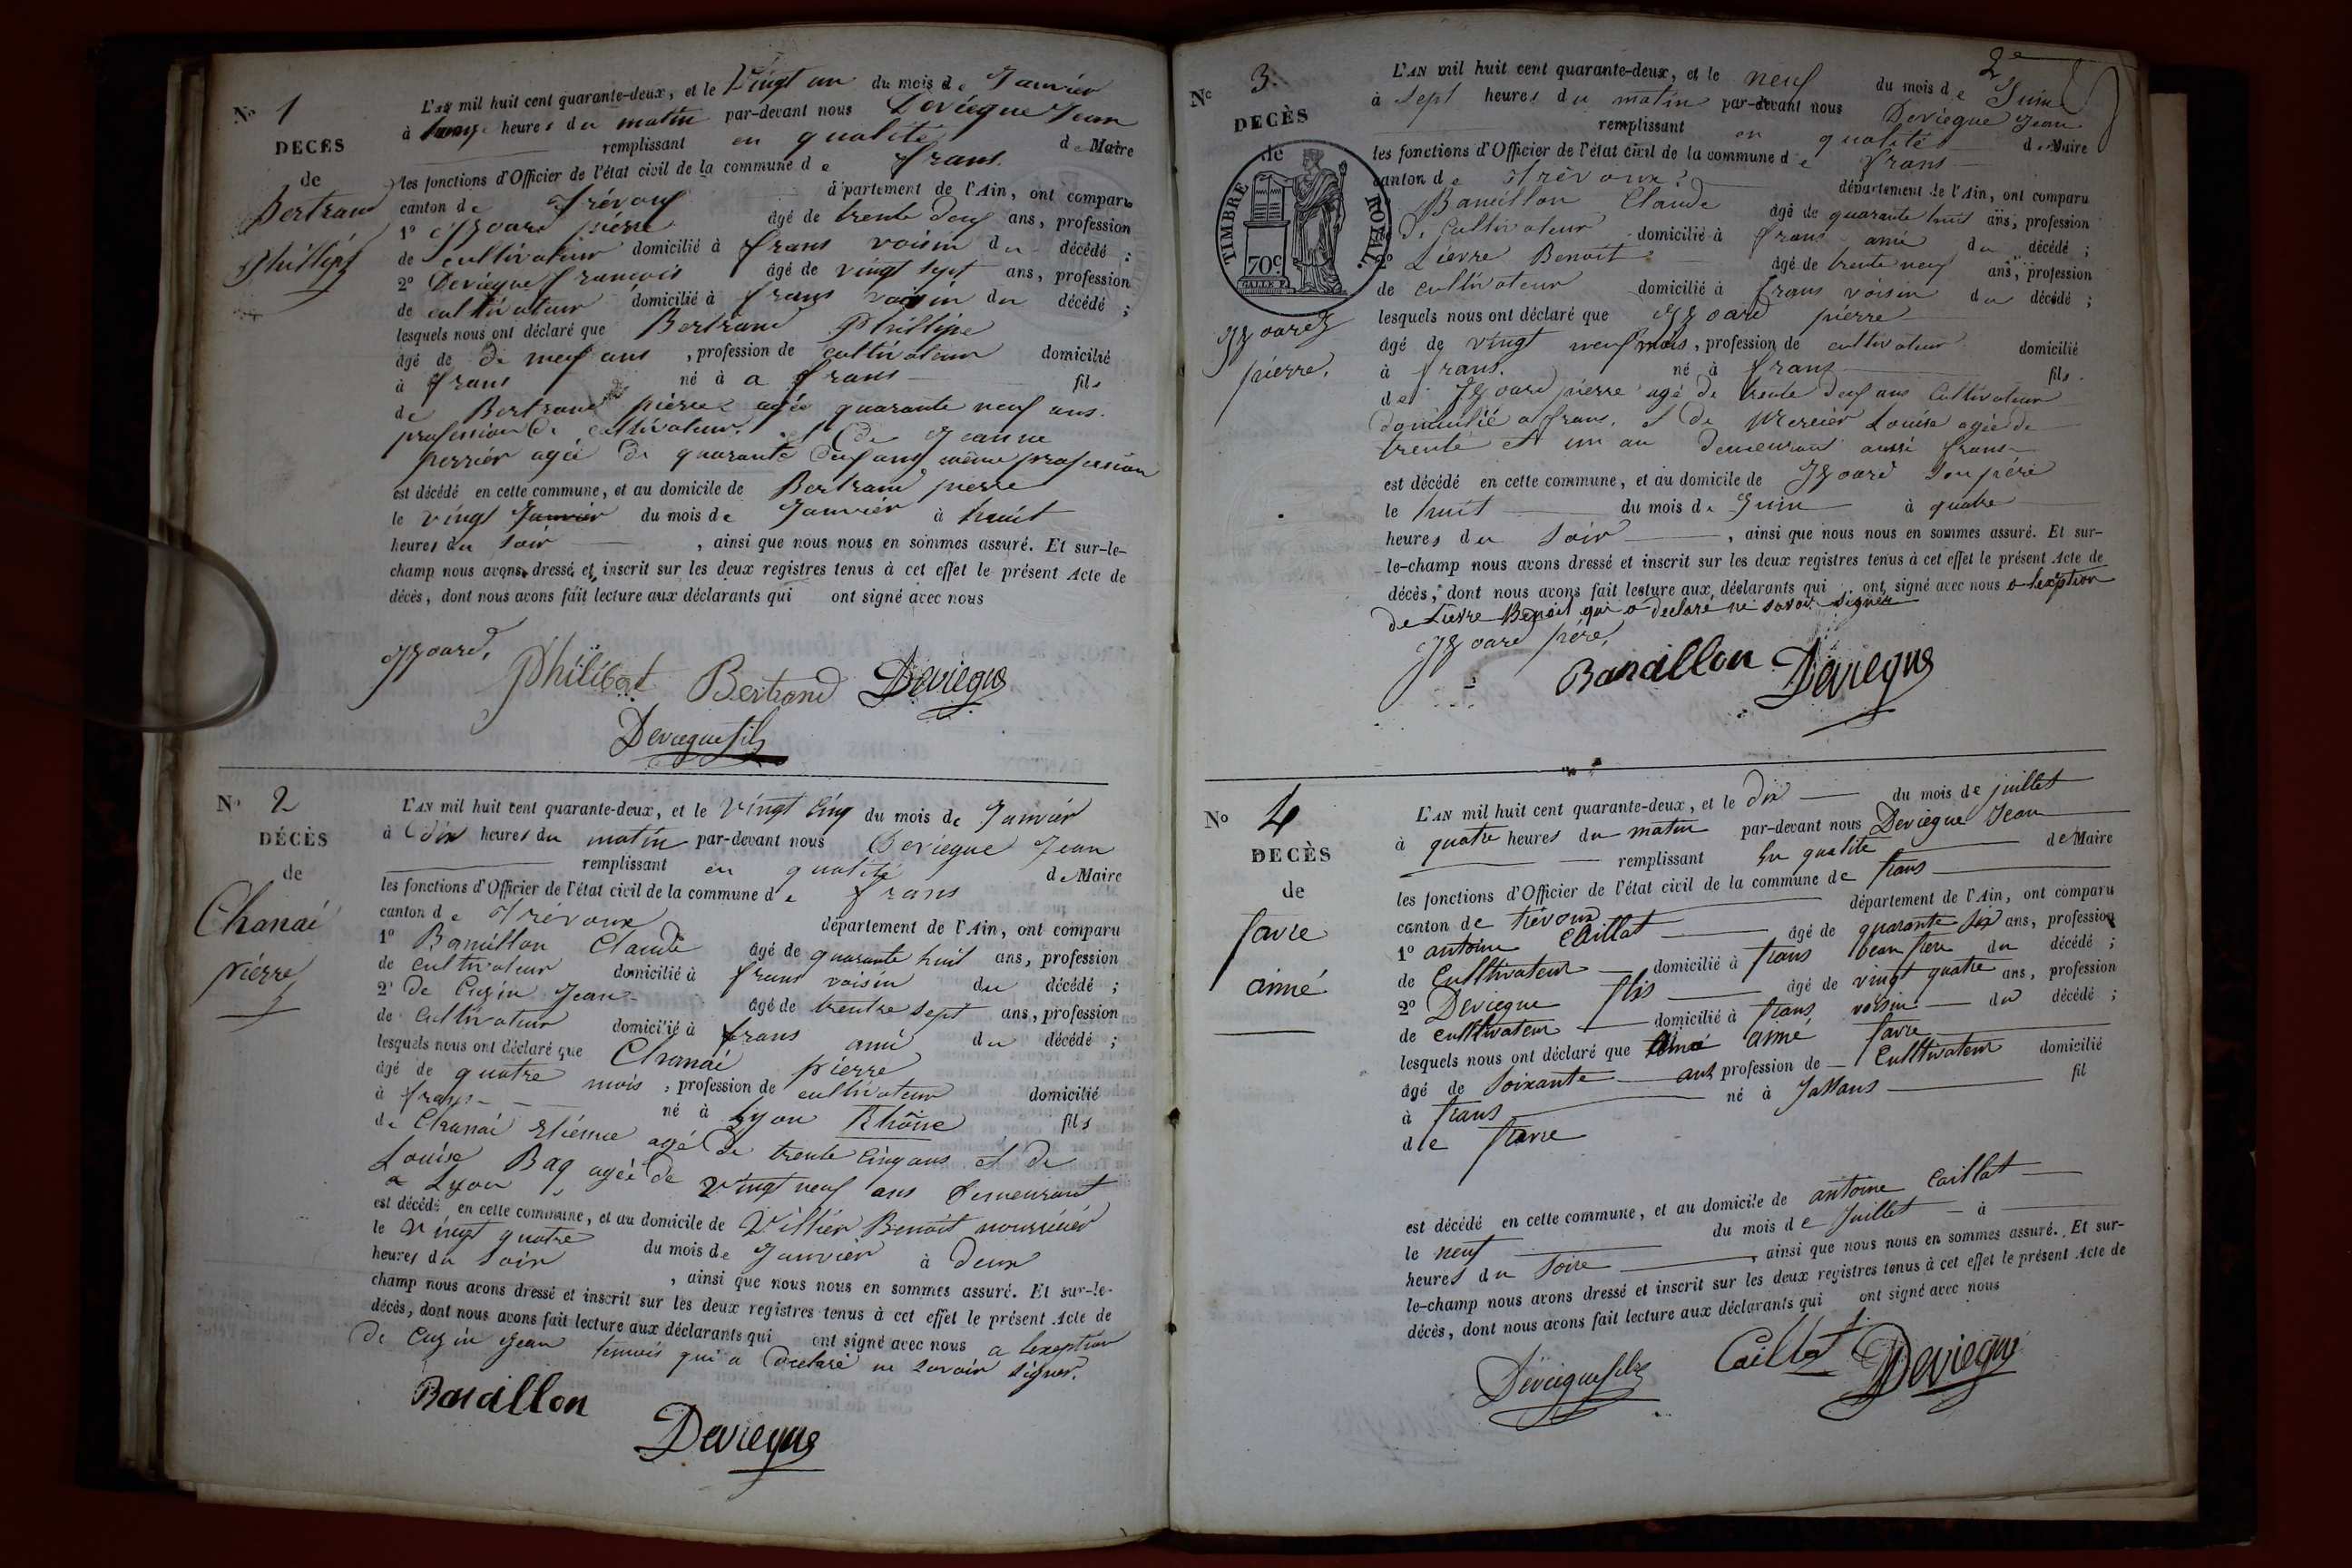 N° 1
DECÈS
de
Bertrand
Phillipe
L'AN mil huit cent quarante-deux, et le Vingt un du mois de Janvier
à heures du matin par-devant nous Deviegue Jean
remplissant en qualité de Maire
les fonctions d'Officier de l'état civil de la commune de frans
canton de trévoux département de l'Ain, ont comparu
1° Izoard pierre âgé de trente deux ans, profession
de cultivateur domicilié à frans voisin du décédé ;
2° Deviegue francois âgé de vingt sept ans, profession
de cultivateur domicilié à frans voisin du décédé ;
lesquels nous ont déclaré que Bertrand Phillipe
âgé de di neuf ans , profession de cultivateur domicilié
à frans né à a frans fils
de Bertrand pierre agée quarante neuf ans.
profession de cultivateur. et de Jeanne
perrier agée de quarante deux ans même profession
est décédé en cette commune, et au domicile de Bertrand pierre
le vingt Janvier du mois de Janvier à huit
heures du soir , ainsi que nous nous en sommes assuré. Et sur-le-
champ nous avons dressé et inscrit sur les deux registres tenus à cet effet le présent Acte de
décès, dont nous avons fait lecture aux déclarants qui ont signé avec nous
Izoard, Philibert Bertrand Deviegue
Deviegue fils
N° 2
DÉCÈS
de
Chanai
pierre
L'AN mil huit cent quarante-deux, et le Vingt Cinq du mois de Janvier
à dix heures du matin par-devant nous Deviegue Jean
remplissant en qualité de Maire
les fonctions d'Officier de l'état civil de la commune de frans
canton de trévoux département de l'Ain, ont comparu
1° Banaillon Claude âgé de quarante huit ans, profession
de cultivateur domicilié à frans voisin du décédé ;
2° de Cuzin Jean âgé de trentre sept ans, profession
de cultivateur domicilié à frans ami du décédé ;
lesquels nous ont déclaré que Chanai pierre
âgé de quatre mois , profession de cultivateur domicilié
à frans né à Lyon Rhône fils
de Chanai Etienne agé de trente cinq ans et de
Louise Baq agée de vingt neuf ans demeurant
a Lyon
est décédé en cette commune, et au domicile de Villier Benoit nourricier
le vingt quatre du mois de Janvier à deux
heures du soir , ainsi que nous nous en sommes assuré. Et sur-le-
champ nous avons dressé et inscrit sur les deux registres tenus à cet effet le présent Acte de
décès, dont nous avons fait lecture aux déclarants qui ont signé avec nous a lexeption
de Cuzin Jean temois qui a declaré ne savoir signer.
Banaillon
Deviegue
2e
N° 3
DECÈS
de
TIMBRE ROYAL.
70c
Izoard
pierre.
L'AN mil huit cent quarante-deux, et le neuf du mois de Juin
à sept heures du matin par-devant nous Deviegue Jean
remplissant en qualité de Maire
les fonctions d'Officier de l'état civil de la commune de frans
canton de trévoux département de l'Ain, ont comparu
Banaillon Claude âgé de quarante huit ans, profession
de cultivateur domicilié à frans ami du décédé ;
2° Lievre Benoit âgé de trente neuf ans, profession
de cultivateur domicilié à frans voisin du décédé ;
lesquels nous ont déclaré que Izoard pierre
âgé de vingt neuf mois, profession de cultivateur domicilié
à frans. né à frans fils
de Izoard pierre agé de trente deux ans Cultivateur
domicilié a frans, et de Mercier Louise agée de
trente et un an demeurant aussi frans
est décédé en cette commune, et au domicile de Izoard son père
le huit du mois de Juin à quatre
heures du soir , ainsi que nous nous en sommes assuré. Et sur-
le-champ nous avons dressé et inscrit sur les deux registres tenus à cet effet le présent Acte de
décès, dont nous avons fait lecture aux déclarants qui ont signé avec nous a lexeption
de Lievre Benoit qui a declaré ne savoir signer
Izoard père,
Banaillon Deviegue
N° 4
DECÈS
de
favre
aimé
L'AN mil huit cent quarante-deux, et le dix du mois de juillet
à quatre heures du matin par-devant nous Deviegue Jean
remplissant en qualité de Maire
les fonctions d'Officier de l'état civil de la commune de frans
canton de trévoux département de l'Ain, ont comparu
1° antoine Caillat âgé de quarante six ans, profession
de Cultivateur domicilié à frans beau frere du décédé ;
2° Deviegue fils âgé de vingt quatre ans, profession
de cultivateur domicilié à frans voisin du décédé ;
lesquels nous ont déclaré que aimé favre
âgé de Soixante ans profession de Cultivateur domicilié
à frans né à Jassans fil
de favre
est décédé en cette commune, et au domicile de antoine Caillat
le neuf du mois de Juillet à
heures du Soire , ainsi que nous nous en sommes assuré. Et sur-
le-champ nous avons dressé et inscrit sur les deux registres tenus à cet effet le présent Acte de
décès, dont nous avons fait lecture aux déclarants qui ont signé avec nous
Deviegue fils Caillat Deviegue